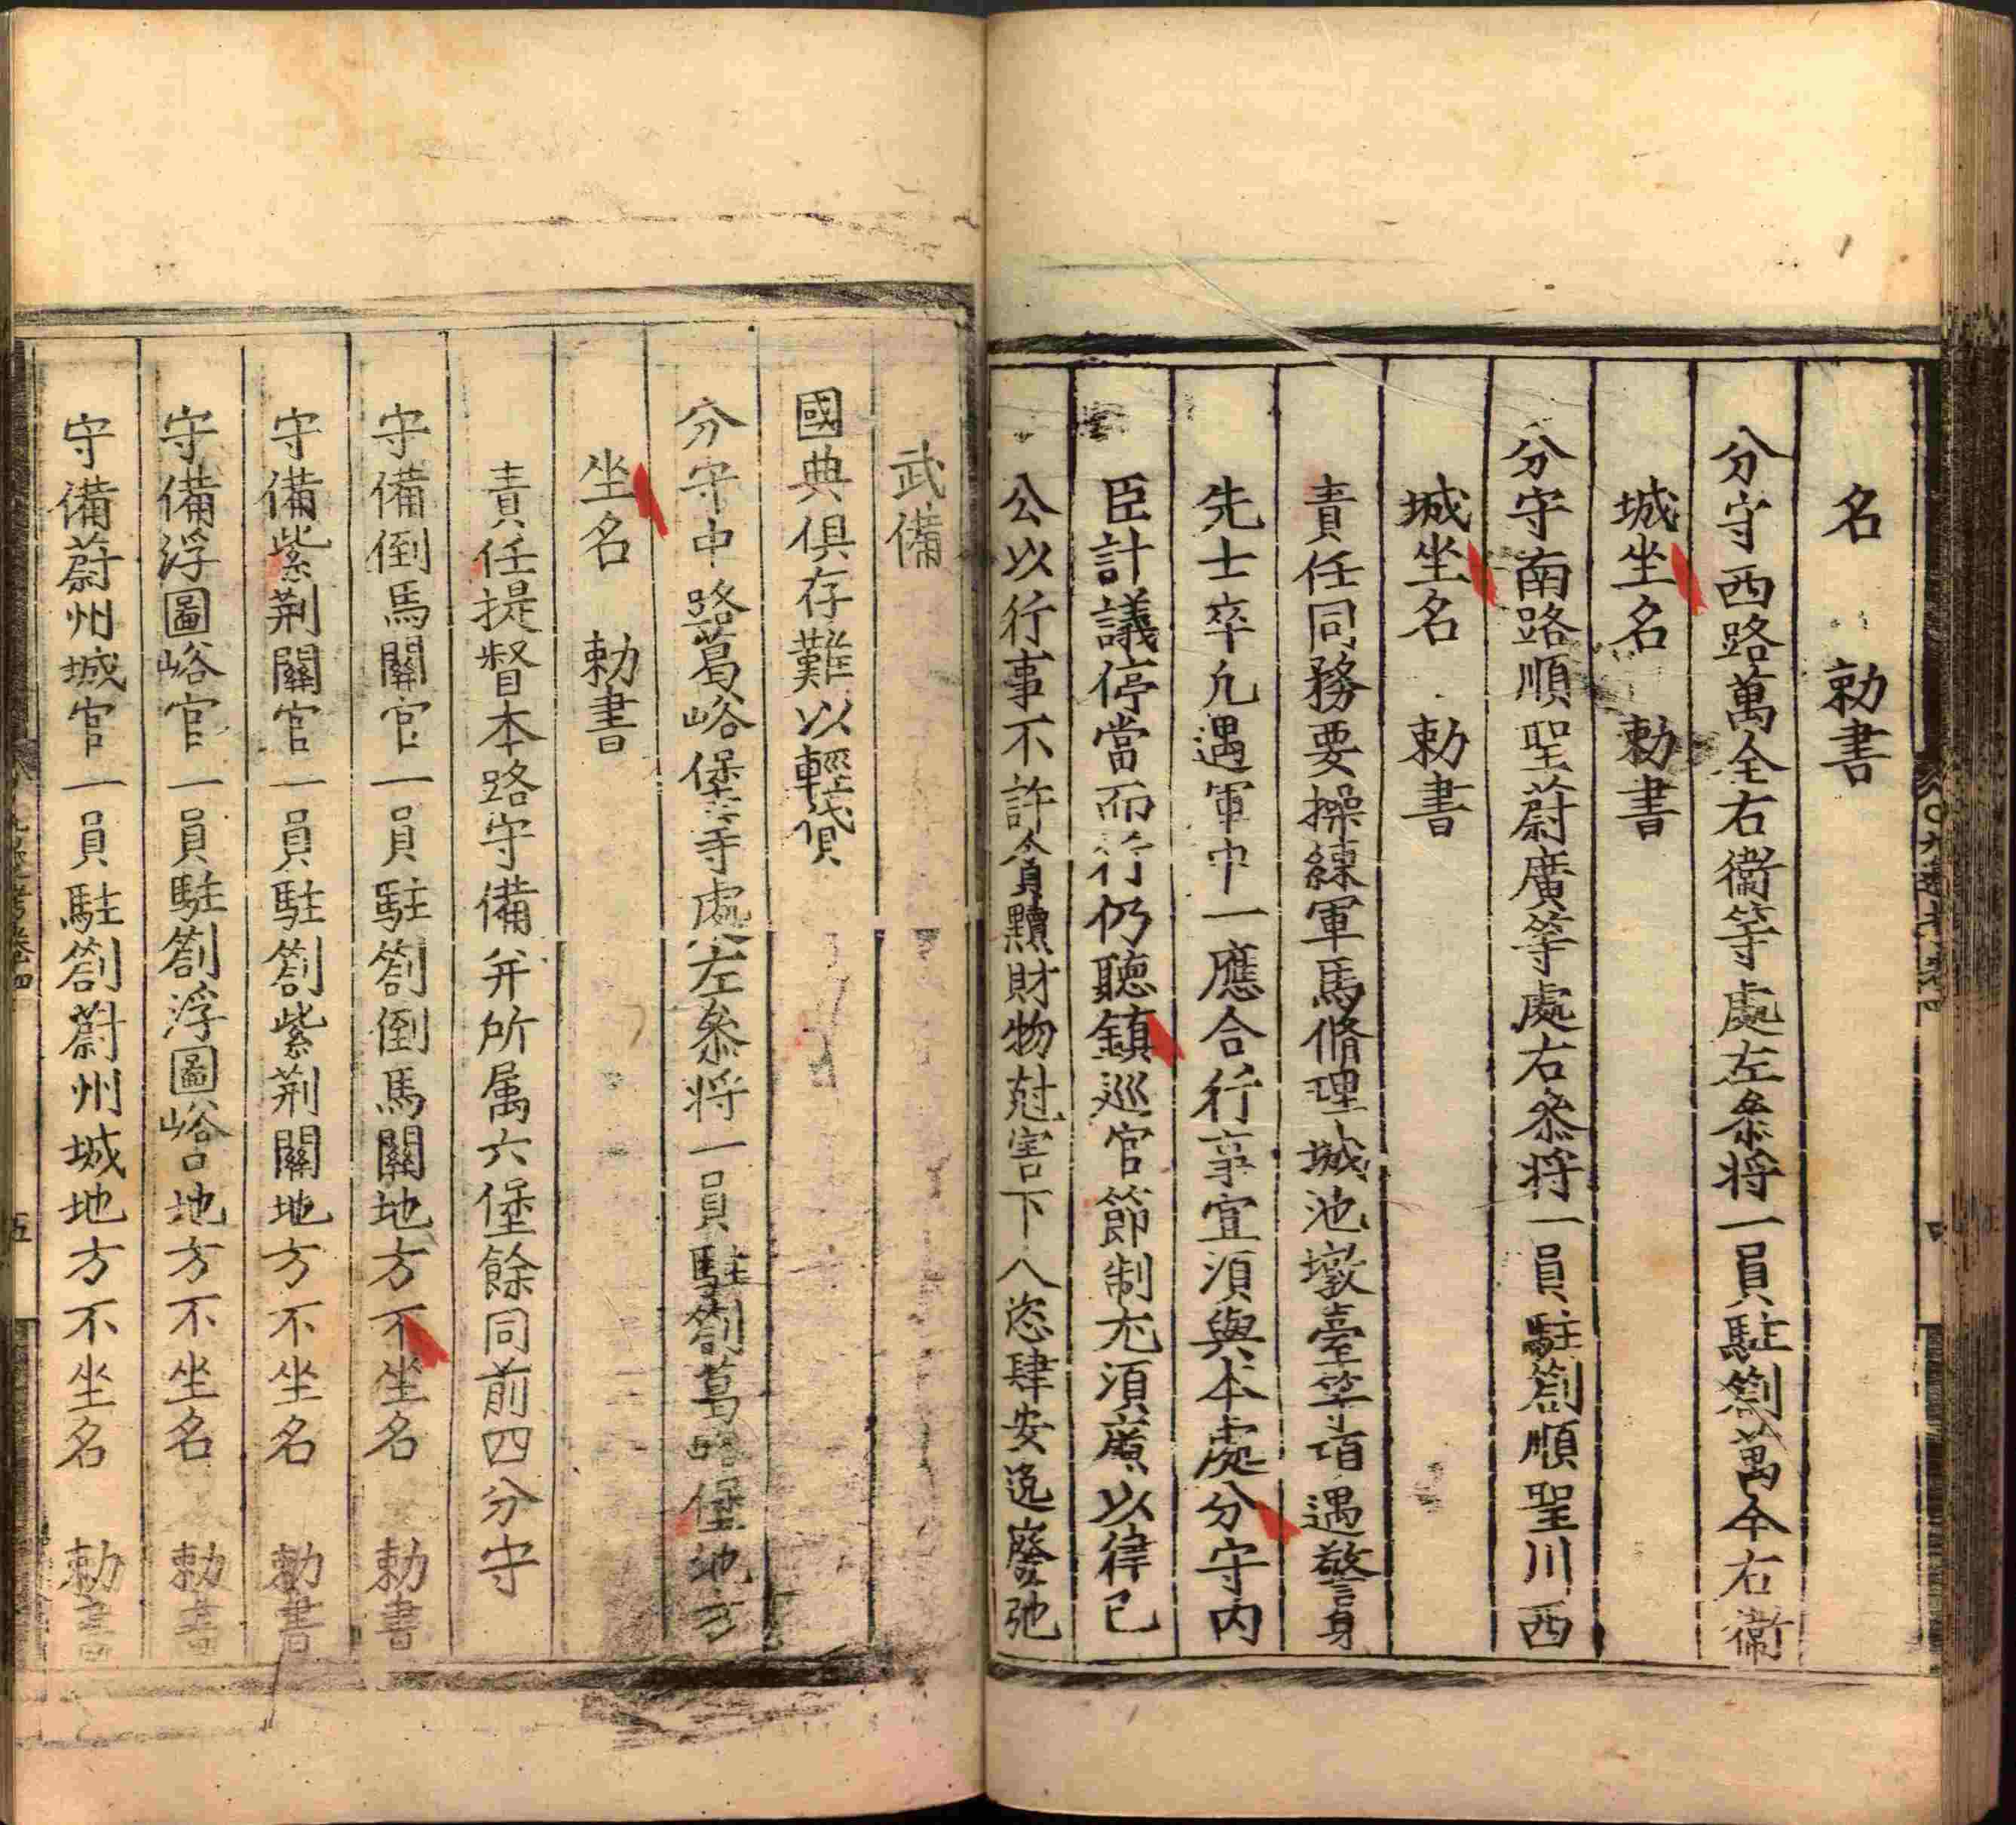 名　勅書
分守西路萬全右衞等處左叅将一員駐劄萬全右衞
城坐名　勅書
分守南路順聖蔚廣等處右叅将一員駐劄順聖川西
城坐名　勅書
責任同務要操練軍馬脩理城池墩臺等項遇警身
先士卒凢遇軍中一應合行事宜須與本處分守内
臣計議停當而行仍聽鎮巡官節制尤須廣以律已
公以行事不許貪黷財物尅害下人恣肆安逸廢弛
武備
國典俱存難以輕貸
分守中路葛峪堡等處左叅将一員駐劄葛峪堡地方
坐名　勅書
責任提督本路守備并所属六堡餘同前四分守
守備倒馬關官一員駐劄倒馬關地方不坐名　勅書
守備紫荆關官一員駐劄紫荆關地方不坐名　勅書
守備浮圖峪官一員駐劄浮圖峪地方不坐名　勅書
守備蔚州城官一員駐劄蔚州城地方不坐名　勅書
五